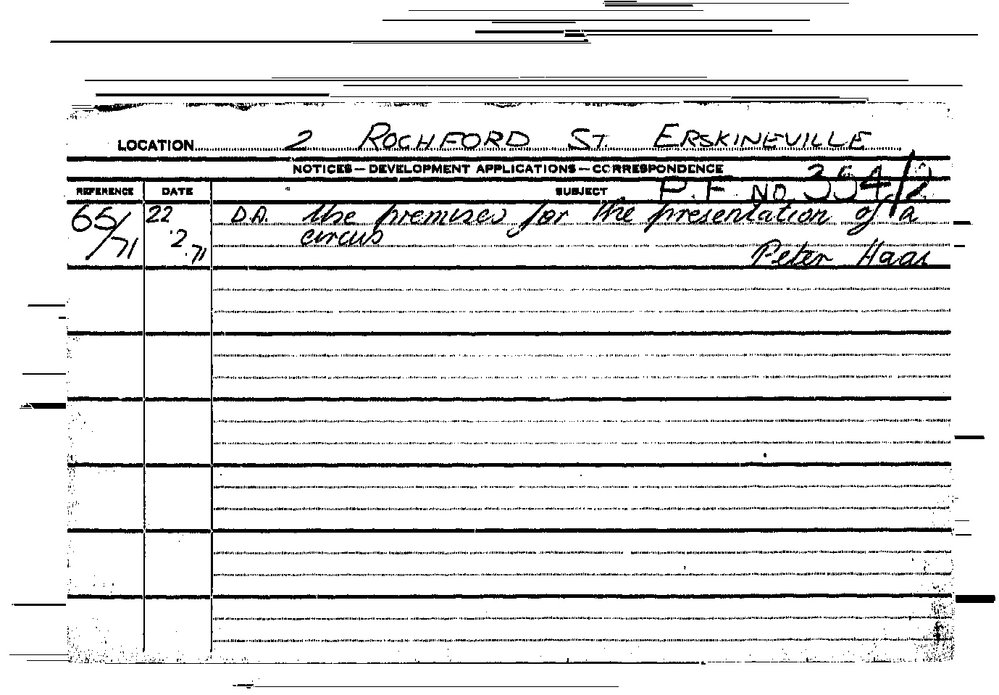 LOCATION 2 ROCHFORD ST. ERSKINEVILLE
NOTICES — DEVELOPMENT APPLICATIONS — CORRESPONDENCE
REFERENCE DATE SUBJECT P.F. NO 354/2
65/71 22.2.71 D.A. Use premises for the presentation of a
circus
Peter Haas